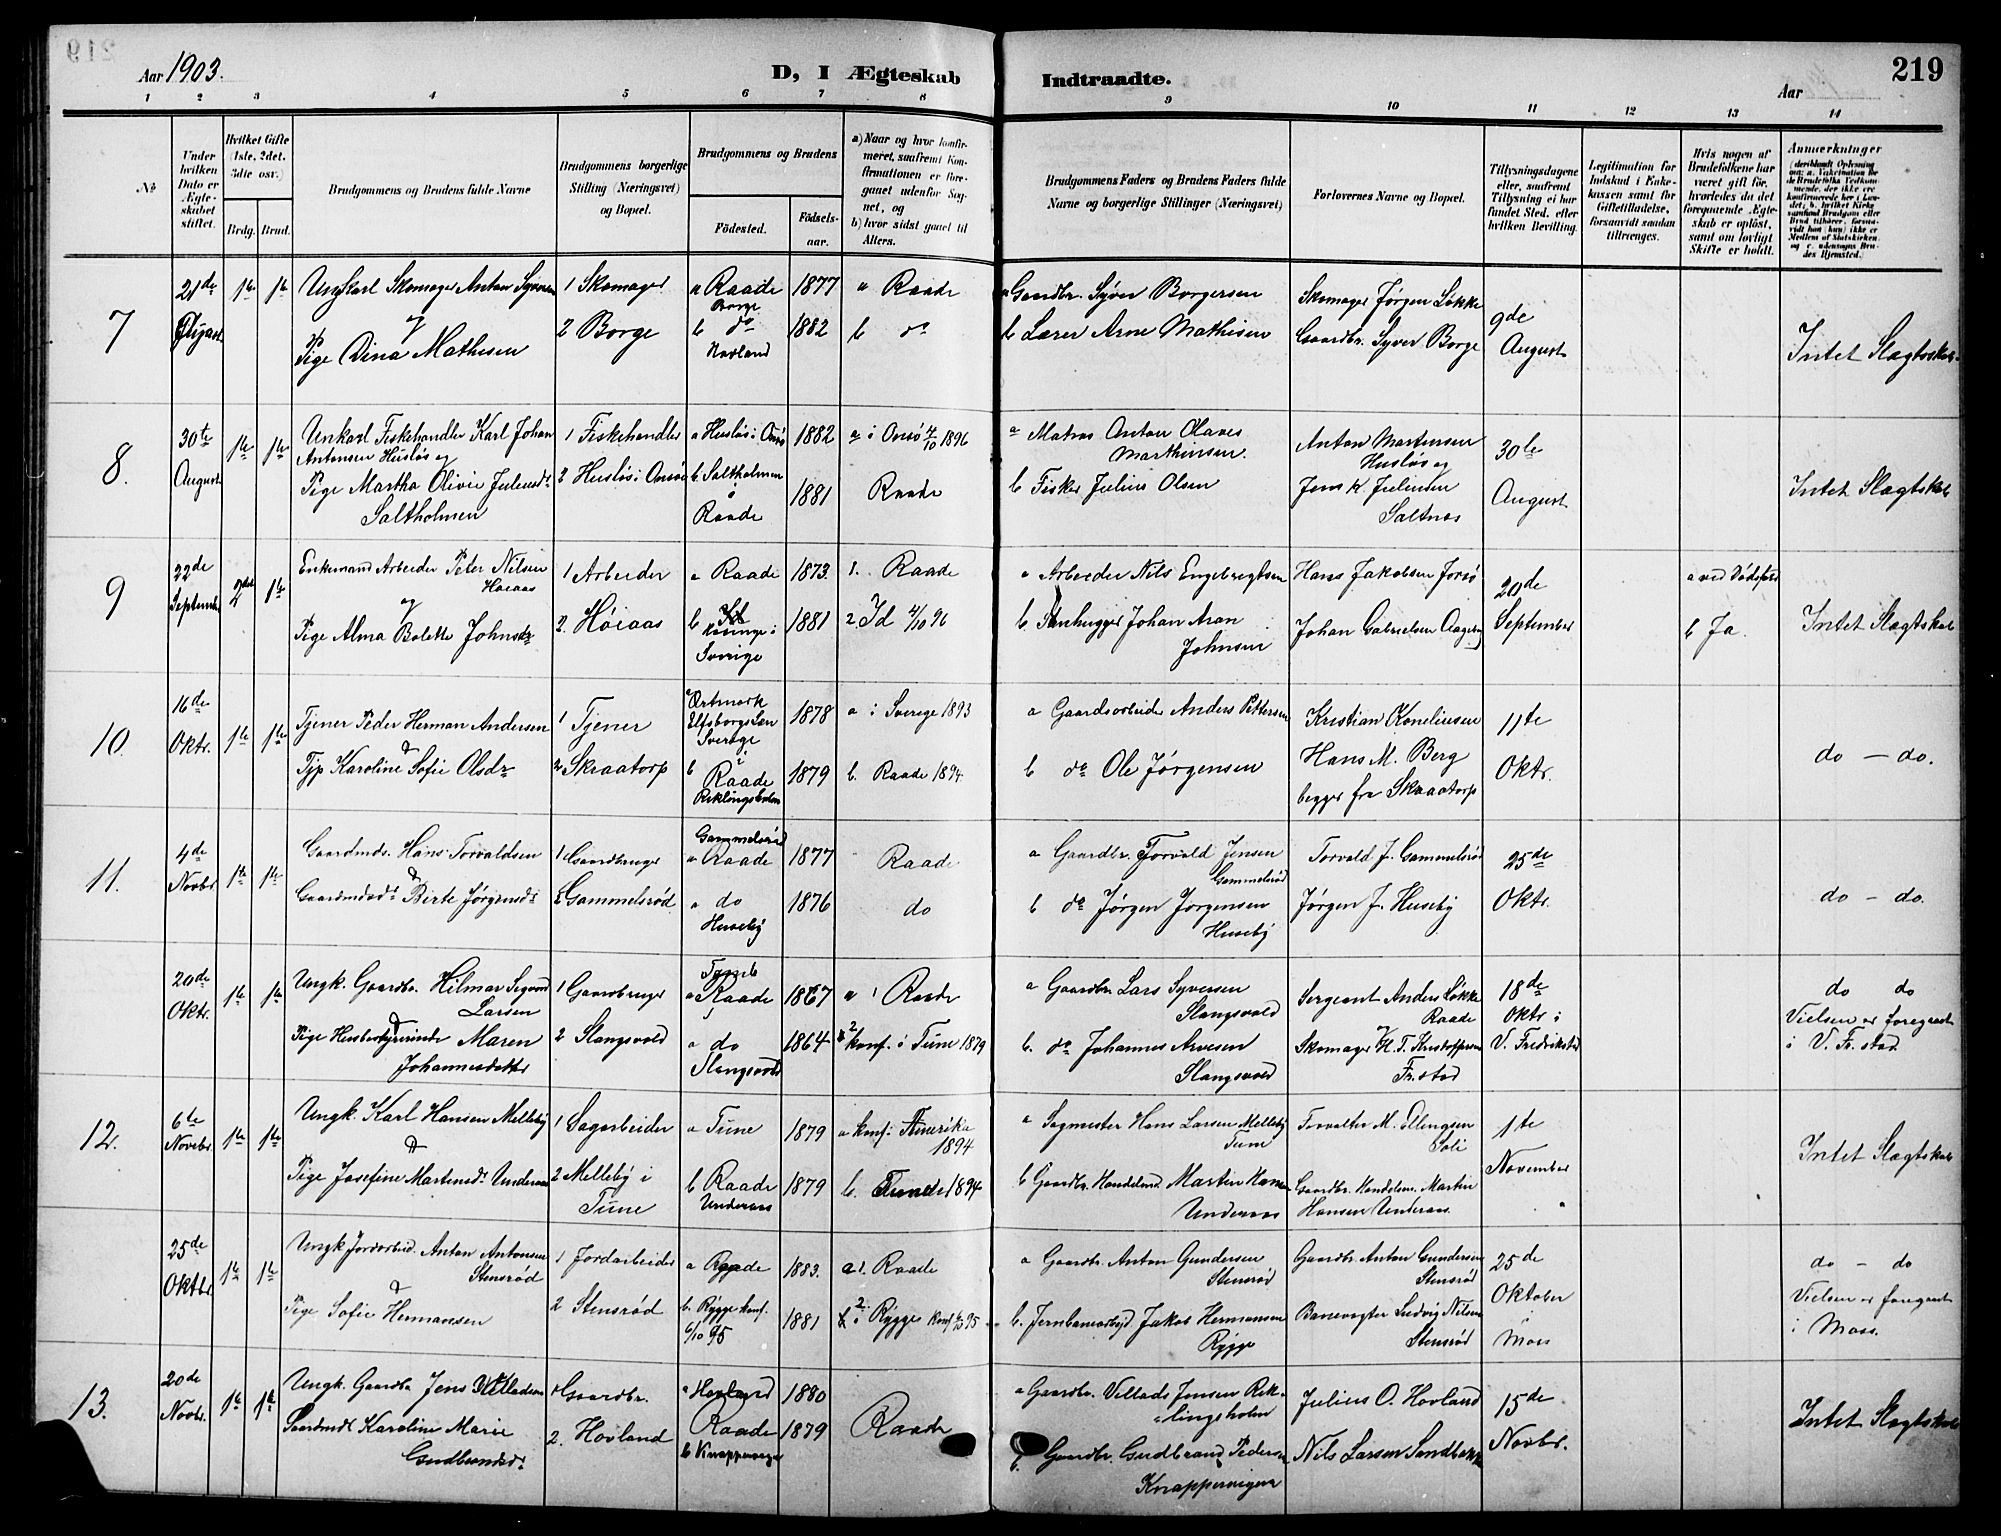 Aar 1903.
D, I Ægteskab
Indtraadte.
Aar
219
1 2 3 4 5 6 7 8 9 10 11 12 13 14
No
Under hvilken Dato er Ægteskabet stiftet.
Hvilket Gifte (1ste, 2det, 3die osv.)
Brdg. Brud.
Brudgommens og Brudens fulde Navne
Brudgommens borgerlige Stilling (Næringsvei) og Bopæl.
Brudgommens og Brudens
Fødested. Fødselsaar.
a) Naar og hvor konfirmeret, saafremt Konfirmationen er foregaaet udenfor Sognet, og
b) hvor sidst gaaet til Alters.
Brudgommens Faders og Brudens Faders fulde Navne og borgerlige Stillinger (Næringsvei)
Forlovernes Navne og Bopæl.
Tillysningsdagene eller, saafremt Tillysning ei har fundet Sted, efter hvilken Bevilling.
Legitimation for Indskud i Enkekassen samt for Giftetilladelse, forsaavidt saadan tiltrænges.
Hvis nogen af Brudefolkene har været gift før, hvorledes da det foregaaende Ægteskab er opløst, samt om lovligt Skifte er holdt.
Anmærkninger
7
21de August
1te 1te
Ungkarl Skomager Anton Syversen
og
Pige Dina Mathisen
1 Skomager
2 Borge
a Raade
Borge
b do
Hovland
1877
1882
a Raade
b do
a Gaardbr. Syver Borgersen
b Lærer Arne Mathisen
Skomager Jørgen Løkke
Gaardbr. Syver Borge
9de
August
Intet Slagtskab
8.
30te
August
1te 1te
Unkarl Fiskehandler Karl Johan
Antonsen Husløs og
Pige Martha Olivie Juliusdt.
Saltholmen
1 Fiskehandler
2 Husløs i Onsø
a Husløs i Onsø
b. Saltholmen
i
Raade
1882
1881
a i Onsø 4/10 1896
Raade
a Matros Anton Olaves
Marthinsen.
b Fisker Julius Olsen
Anton Martinsen
Husløs og
Jens K. Juliussen
Saltnes
30te
August
Intet Slagtskab
9
22de
September
2det 1te
Enkemand Arbeider Peter Nilsen
Høiaas
og
Pige Alma Bolette Johnsdr
1 Arbeider
2. Høiaas
a Raade
b
Sverige
1873.
1881
1. Raade
2. Id 4/10 96
a Arbeider Nils Engebregtsen
b. Stenhugger Johan Aron
Johnsen
Hans Jakobsen
Johan Gabrielsen
20de
September
a ved Dødsfald
b Ja.
Intet Slagtskab
10.
16de
Oktr.
1te 1te
Tjener Peder Herman Andersen
&
Tjp Karoline Sofie Olsdr
1 Tjener
2 Skraatorp
a Ørtmark
Elfsborgs Læn
Sverige
b i
Raade
Riklingsholm
1878
1879
a i Sverige 1893
b. Raade 1894.
a Gaardsarbeider Anders Pettersen
b do Ole Jørgensen
Kristian Korneliusen
Hans M. Berg
begge fra Skraatorp
11te
Oktr.
do — do.
11.
4de
Novbr.
1te 1te
Gaardmds. Hans Torvaldsen
&
Gaardmdsdr Birte Jørgensdr
1 Gaardbruger
2 Gammelsrød
Gammelsrød
a Raade
a do
Huseby
1877
1876
Raade
do
a Gaardbr. Torvald Jensen
Gammelsrød
b do Jørgen Jørgensen
Huseby
Torvald J. Gammelsrød
Jørgen J. Huseby
25de
Oktr.
do — do.
20de
Oktr.
1te 1te
Ungk. Gaardbr. Hilmar Sigvard
Larsen
&
Pige Husbestyrerinde Maren
Johannesdatter
1 Gaardbruger
2 Slangsvold
Tomb
a Raade
a do
Slangsvold
1867
1864
a i Raade
2 konf. i Tune 1879
a Gaardbr. Lars Syversen
Slangsvold
b. do Johannes Arvesen
Slangsvold
Sergeant Anders Løkke
Raade
Skomager H. T. Kristoffersen
Fr.stad
18de
Oktr i
V. Fredrikstad
do do
Vielsen er foregaaet
i V. Fr.stad.
12.
6te
Novbr.
1te 1te
Ungk. Karl Hansen Melleby
&
Pige Josefine Martinsdr Underaas
1 Sagarbeider
2 Melleby i
Tune
a Tune
b Raade
Underaas
1879
1879
a konf. i Amerika
1894
b. Tune 1894
a Sagmester Hans Larsen Melleby
Tune
b Gaardbr. Handelsmd. Martin Hansen
Underaas
Forvalter M. Ellingsen
Soli
Gaardbr. Handelsm. Martin
Hansen Underaas.
1te
November
Intet Slagtskab
25de
Oktbr.
1te 1te
Ungk Jordarbeid. Anton Antonsen
Stensrød
&
Pige Sofie Hermansen
1 Jordarbeider
2 Stensrød
a Raade
b. Rygge konf.
6/10 95
1883.
1881
a 1. Raade
2. i Rygge konf 6/10 95
a Gaardbr. Anton Gundersen
Stensrød
b. Jernbanearbejd. Jakob Hermansen
Rygge
Gaardbr. Anton Gundersen
Stensrød
Banevogter Ludvig Nilsen
Stensrød
25de
Oktober
i
Moss
do — do
Vielsen er foregaaet
i Moss.
13.
20de
Novbr.
1te 1te
Ungk. Gaardbr. Jens Villadsen
Gaardmdr Karoline Marie
Gudbrandsdr
1 Gaardbr.
2. Hovland
a Hovland
Raade
b Knappernger
1880
1879
Raade
a Gaardbr. Villads Jensen Rik-
lingsholm
b. Gaardbr. Gudbrand Pedersen
Julius O. Hovland
Nils Larsen Sandbakken
15de
Novbr.
Intet Slagtskab